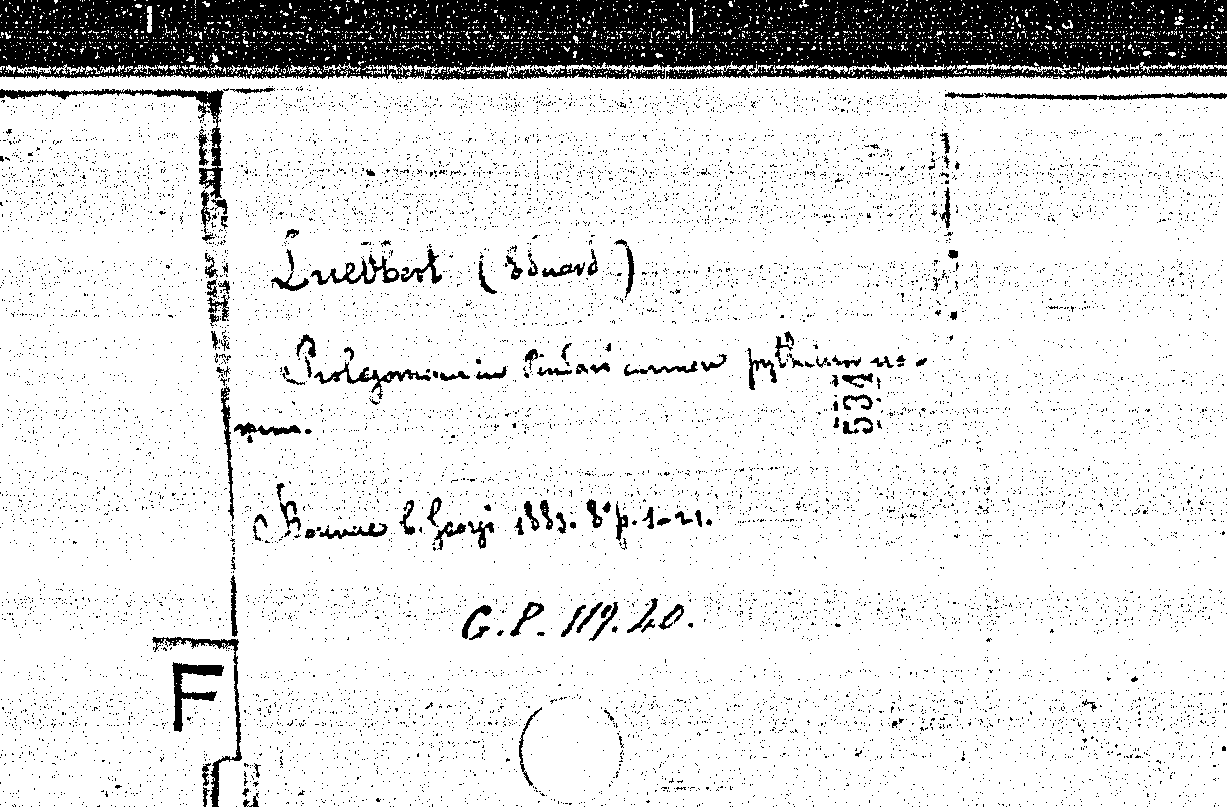 Luebbert (Eduard)
Prolegomena in Pindari carmen pythium no-
num.
Bonnae C. Georgi 1883. 8° p. 1-21.
534
G.P. 119.20.
F